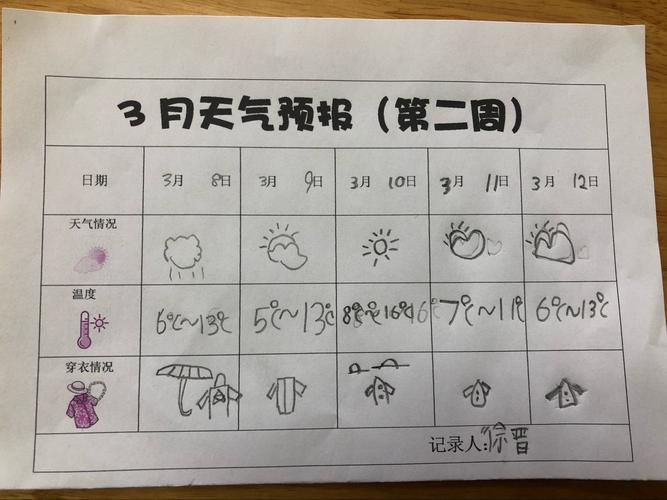 3月天气预报（第二周）
日期 3月 8日 3月 9日 3月 10日 3月 11日 3月 12日
天气情况
温度 6℃~13℃ 5℃~13℃ 8℃~16℃ 7℃~11℃ 6℃~13℃
穿衣情况
记录人:徐晋